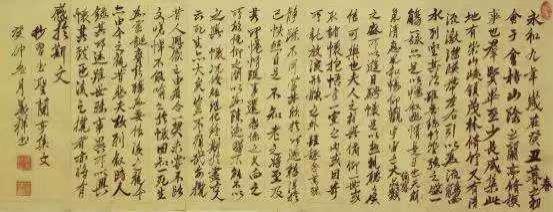 永和九年歲在癸丑暮春初
會于會稽山陰之蘭亭脩禊
事也羣賢畢至少長咸集此
地有崇山峻領茂林脩竹又有清
流激湍映帶左右引以為流觴曲
水列坐其次雖無絲竹管弦之盛一
觴一詠亦足以暢敘幽情是日也天朗
氣清惠風和暢仰觀宇宙之大
之盛所以遊目騁懷足以極視聽之娛
信可樂也夫人之相與俯仰一世或
取諸懷抱悟言一室之內或因寄
所託放浪形骸之外雖
靜躁不同
己快然自足不知老之將至及
感慨係之矣向之
可能俯仰之間以為陳迹猶不能不以
之興懷況脩短隨化終期於盡古人
云死生亦大矣豈不痛哉每攬
昔人興感之由若合一契未嘗不臨
文嗟悼不能喻之於懷固知一死生
為虛誕齊彭殤為妄作後之視今
亦由今之視昔悲夫故列敘時人
錄其所述雖世殊事異所以興
懷其致一也後之攬者亦將有
感於斯文
書聖蘭亭集文
癸卯年月書